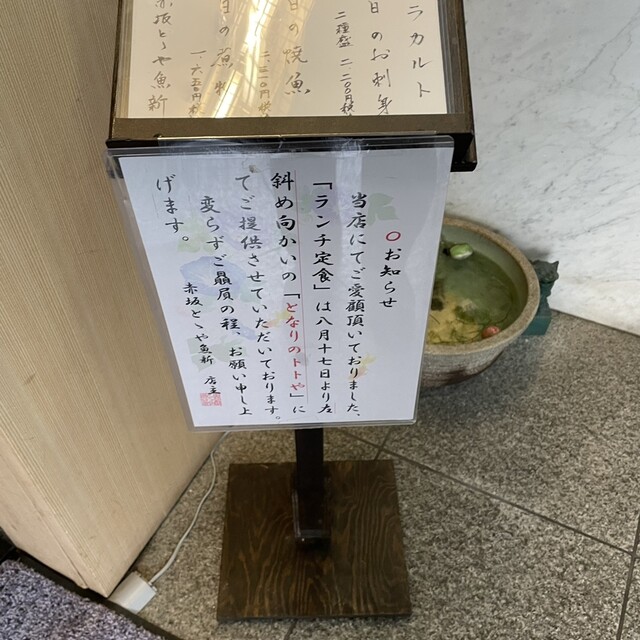 ラカルト
日のお刺身
二種盛 二、二〇〇円
日の焼魚
日の煮物
一、六五〇円
赤坂とゝや魚新
○お知らせ
当店にてご愛顧頂いておりました、
「ランチ定食」は八月十七日より左
斜め向かいの「となりのトトや」に
てご提供させていただいております。
変らずご贔屓の程、お願い申し上
げます。
赤坂とゝや魚新 店主